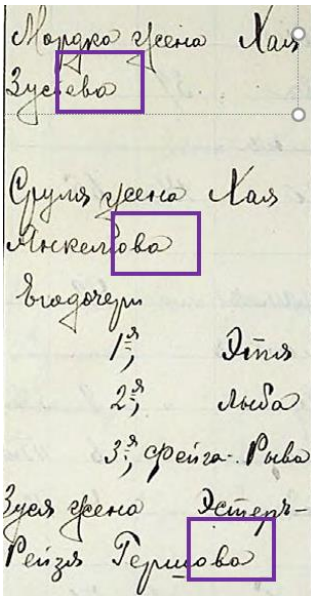 Мордка жена Хая
Зусева
Сруля жена Хая
Янкелева
Его дочери
1я, Этля
2я, Лыба
3я, Фейга-Рыва
Зуся жена Эстеръ-
Рейзя Гершова